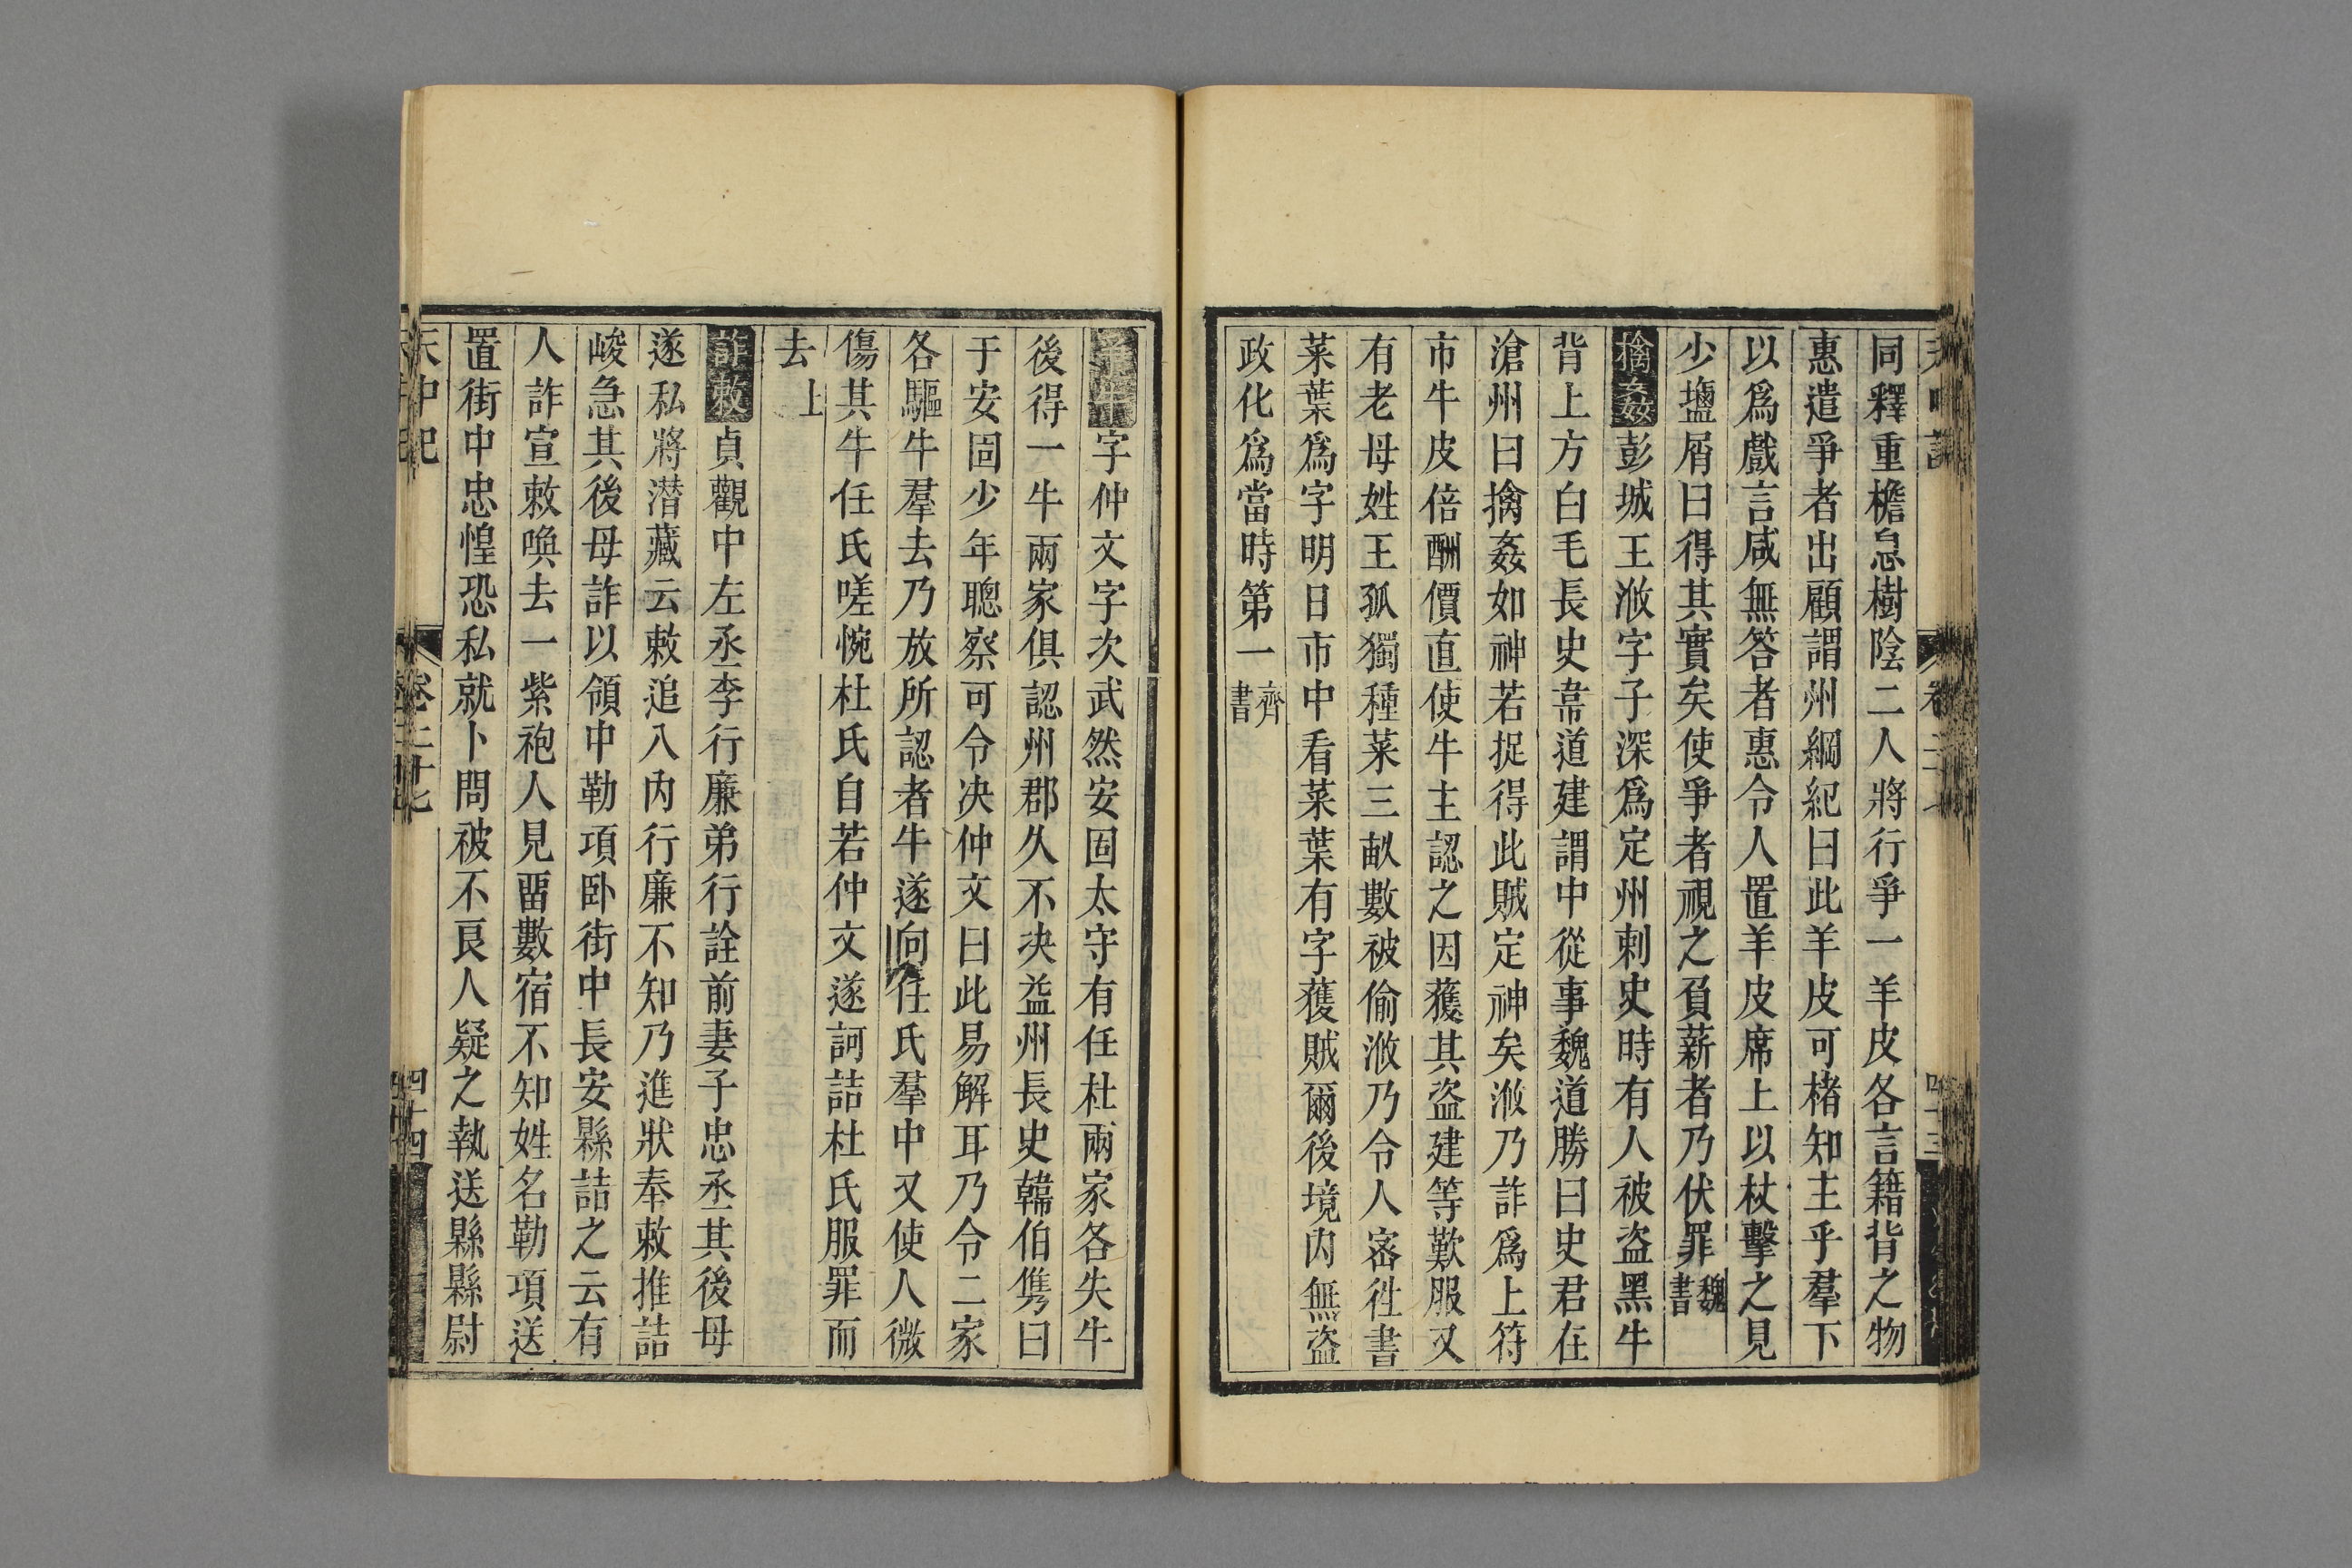 同釋重檐息樹陰二人將行爭一羊皮各言籍背之物
惠遣爭者出顧謂州綱紀曰此羊皮可楮知主乎羣下
以爲戲言咸無答者惠令人置羊皮席上以杖擊之見
少鹽屑曰得其實矣使爭者視之負薪者乃伏罪魏書
擒姦彭城王浟字子深爲定州刺史時有人被盜黑牛
背上方白毛長史韋道建謂中從事魏道勝曰史君在
滄州曰擒姦如神若捉得此賊定神矣浟乃詐爲上符
市牛皮倍酬價直使牛主認之因獲其盜建等歎服又
有老母姓王孤獨種菜三畝數被偷浟乃令人密徃書
菜葉爲字明日市中看菜葉有字獲賊爾後境内無盜
政化爲當時第一齊書
字仲文字次武然安固太守有任杜兩家各失牛
後得一牛兩家俱認州郡久不决益州長史韓伯雋曰
于安固少年聰察可令决仲文曰此易解耳乃令二家
各驅牛羣去乃放所認者牛遂向任氏羣中又使人微
傷其牛任氏嗟惋杜氏自若仲文遂訶詰杜氏服罪而
去上
詐敕貞觀中左丞李行廉弟行詮前妻子忠丞其後母
遂私將潜藏云敕追入内行廉不知乃進狀奉敕推詰
峻急其後母詐以領中勒項卧街中長安縣詰之云有
人詐宣敕喚去一紫袍人見畱數宿不知姓名勒項送
置街中忠惶恐私就卜問被不良人疑之執送縣縣尉
天中記
卷二十七
四十四